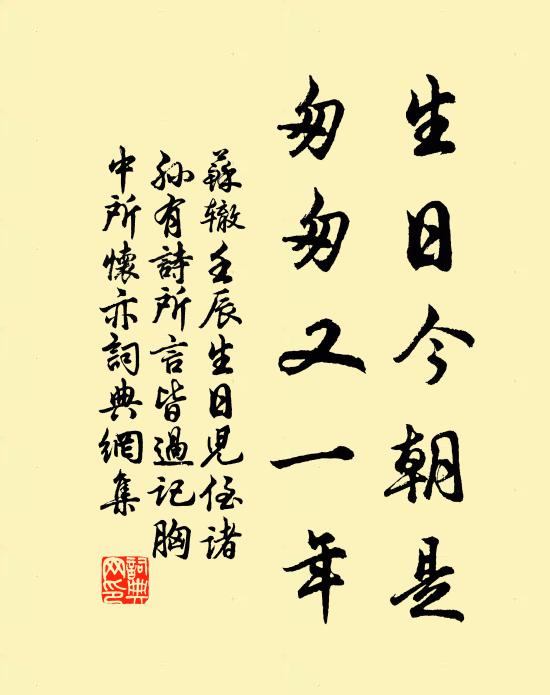 生日今朝是
匆匆又一年
蘇辙壬辰生日兒侄諸
孙有詩所言皆過记胸
中所懷亦詞典網集
詞典
网印